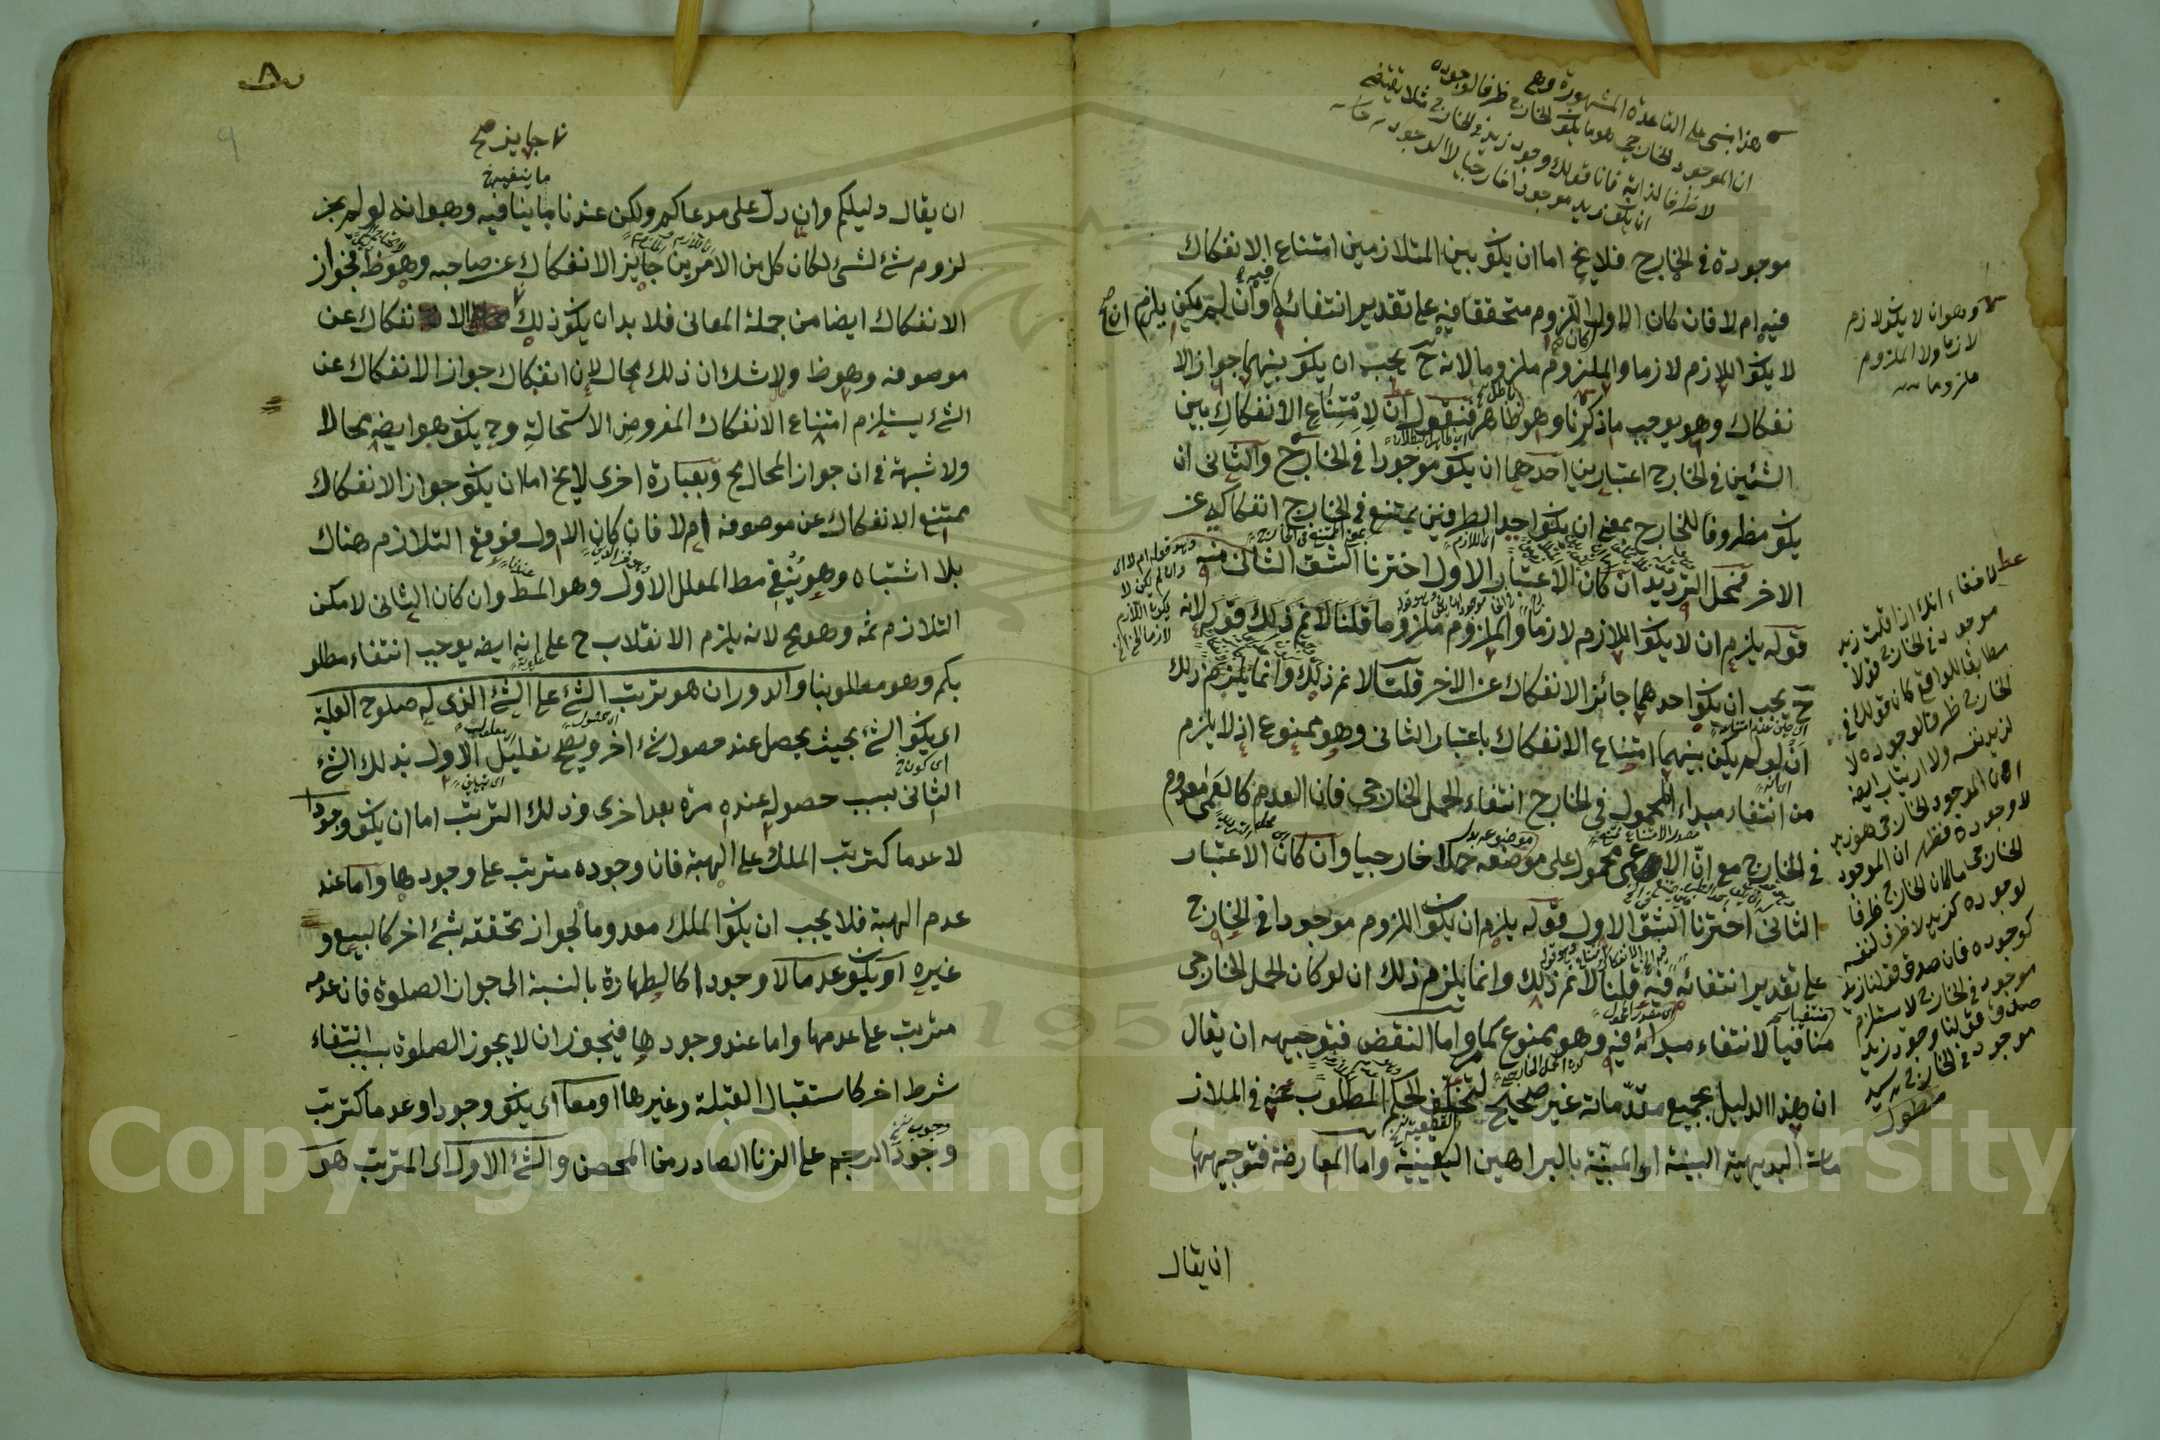 هذا مبنى على القاعدة المشهورة وهى
ان الموجود الخارجى هو ما يكون الخارج ظرفا لوجوده
لا ظرفا لذاته فاذا قولك وجود زيد فى الخارج مثلا يقتضى
ان يكون زيد موجودا خارجيا لا الوجود
موجودة فى الخارج فلا يخ اما ان يكون بين المتلازمين امتناع الانفكاك
فيه ام لا فان كان الاول اللزوم متحققا فيه على تقدير انتفائه فيه وان لم يكن يلزم ان
لا يكون اللازم لازما والملزوم ملزوما لانه ح يجب ان يكون بينهما جواز الا
نفكاك وهو يوجب ما ذكرنا وهو ظاهر فنقول ان لامتناع الانفكاك بين
الشئين فى الخارج اعتبارين احدهما ان يكون موجودا فى الخارج والثانى ان
يكون مظروفا للخارج بمعنى ان يكون احد الطرفين يمتنع فى الخارج انفكاكه عن
الاخر فمحل الترديد ان كان الاعتبار الاول اخترنا الشق الثانى منه
قوله يلزم ان لا يكون اللازم لازما والملزوم ملزوما قلنا لا نم ذلك قوله لانه
ح يجب ان يكون احدهما جائز الانفكاك عن الاخر قلت لا نم ذلك وانما يلزم ذلك
ان لو لم يكن بينهما امتناع الانفكاك باعتبار الثانى وهو ممنوع اذ لا يلزم
من انتفاء مبداء المحمول فى الخارج انتفاء الحمل الخارجى فان العدم كالعمى معدوم
فى الخارج مع ان الاعمى محمول على موضعه حملا خارجيا وان كان الاعتبار
الثانى اخترنا الشق الاول قوله يلزم ان يكون اللزوم موجودا فى الخارج
على تقدير انتفائه فيه قلنا لا نم ذلك وانما يلزم ذلك ان لو كان الحمل الخارجى
منافيا لانتفاء مبدائه فيه وهو ممنوع كما مر واما النقض فتوجيهه ان يقال
ان هذا الدليل بجميع مقدماته غير صحيح لتخلف الحكم المطلوب عنه فى الملاز
مات البديهية البينة او المبينة بالبراهين اليقينية واما المعارضة فتوجيهها
ان يقال
وهو ان لا يكون لازم
لازما ولا الملزوم
ملزوما
لا خفاء انك اذا قلت زيد
موجود فى الخارج قولا
مطابقا للواقع كان قولك فى
الخارج ظرفا لوجوده لا
لزيد نفسه ولا ارتياب ايضا
ان الموجود الخارجى هو زيد
لا وجوده فظهر ان الموجود
الخارجى ما كان الخارج ظرفا
لوجوده كزيد لا ظرفا لنفسه
كوجوده فان صدق قولنا زيد
موجود فى الخارج لا يستلزم
صدق قولنا وجود زيد
موجود فى الخارج سيد
مطول
٨
9
جايز صح
ما ينفيه
ان يقال دليلكم وان دل على مدعاكم ولكن عندنا ما ينافيه وهو انه لو لم يجز
لزوم شئ لشئ لكان كل من الامرين جايز الانفكاك عن صاحبه وهو ظ فجواز
الانفكاك ايضا من جملة المعانى فلا بد ان يكون ذلك الانفكاك عن
موصوفه وهو ظ ولا شك ان ذلك محال لان انفكاك جواز الانفكاك عن
الشئ يستلزم امتناع الانفكاك المفروض الاستحالة وح يكون هو ايضه محالا
ولا شبهة فى ان جواز المحال مح وبعبارة اخرى لا يخ اما ان يكون جواز الانفكاك
ممتنع الانفكاك عن موصوفه ام لا فان كان الاول فوقع التلازم هناك
بلا اشتباه وهو ينفى مط المعلل الاول وهو المط وان كان الثانى لا مكن
التلازم ثمه وهو مح لانه يلزم الانقلاب ح على انه ايضه يوجب انتفاء مطلو
بكم وهو مطلوبنا والدوران هو ترتب الشئ على الشئ الذى له صلوح العلية
اى يكون الشئ بحيث يحصل عند حصول شئ اخر ويصح تعليل الاول بذلك الشئ
الثانى بسبب حصوله عنده مرة بعد اخرى وذلك الترتب اما ان يكون وجودا
لا عدما كترتب الملك على الهبة فان وجوده مترتب على وجودها واما عند
عدم الهبة فلا يجب ان يكون الملك معدوما لجواز تحققه بشئ اخر كالبيع و
غيره او يكون عدما لا وجودا كالطهارة بالنسبة الى جواز الصلوة فان عدمه
مترتب على عدمها واما عند وجودها فيجوز ان لا يجوز الصلوة بسبب انتفاء
شرط اخر كاستقبال القبلة وغيرها او معا اى يكون وجودا وعدما كترتب
وجود الرجم على الزنا الصادر من المحصن والشئ الاول اى المترتب هو
Copyright © King Saud University
1957